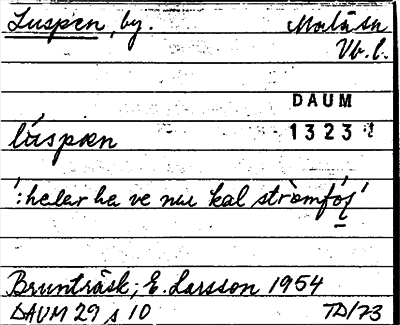 Luspen, by. Malå sn
Vb. l.
DAUM
1323
lúspæn
': heler ha ve nu kal strömfós'
Brunträsk; E. Larsson 1954
DAUM 29 s 10 TD/73